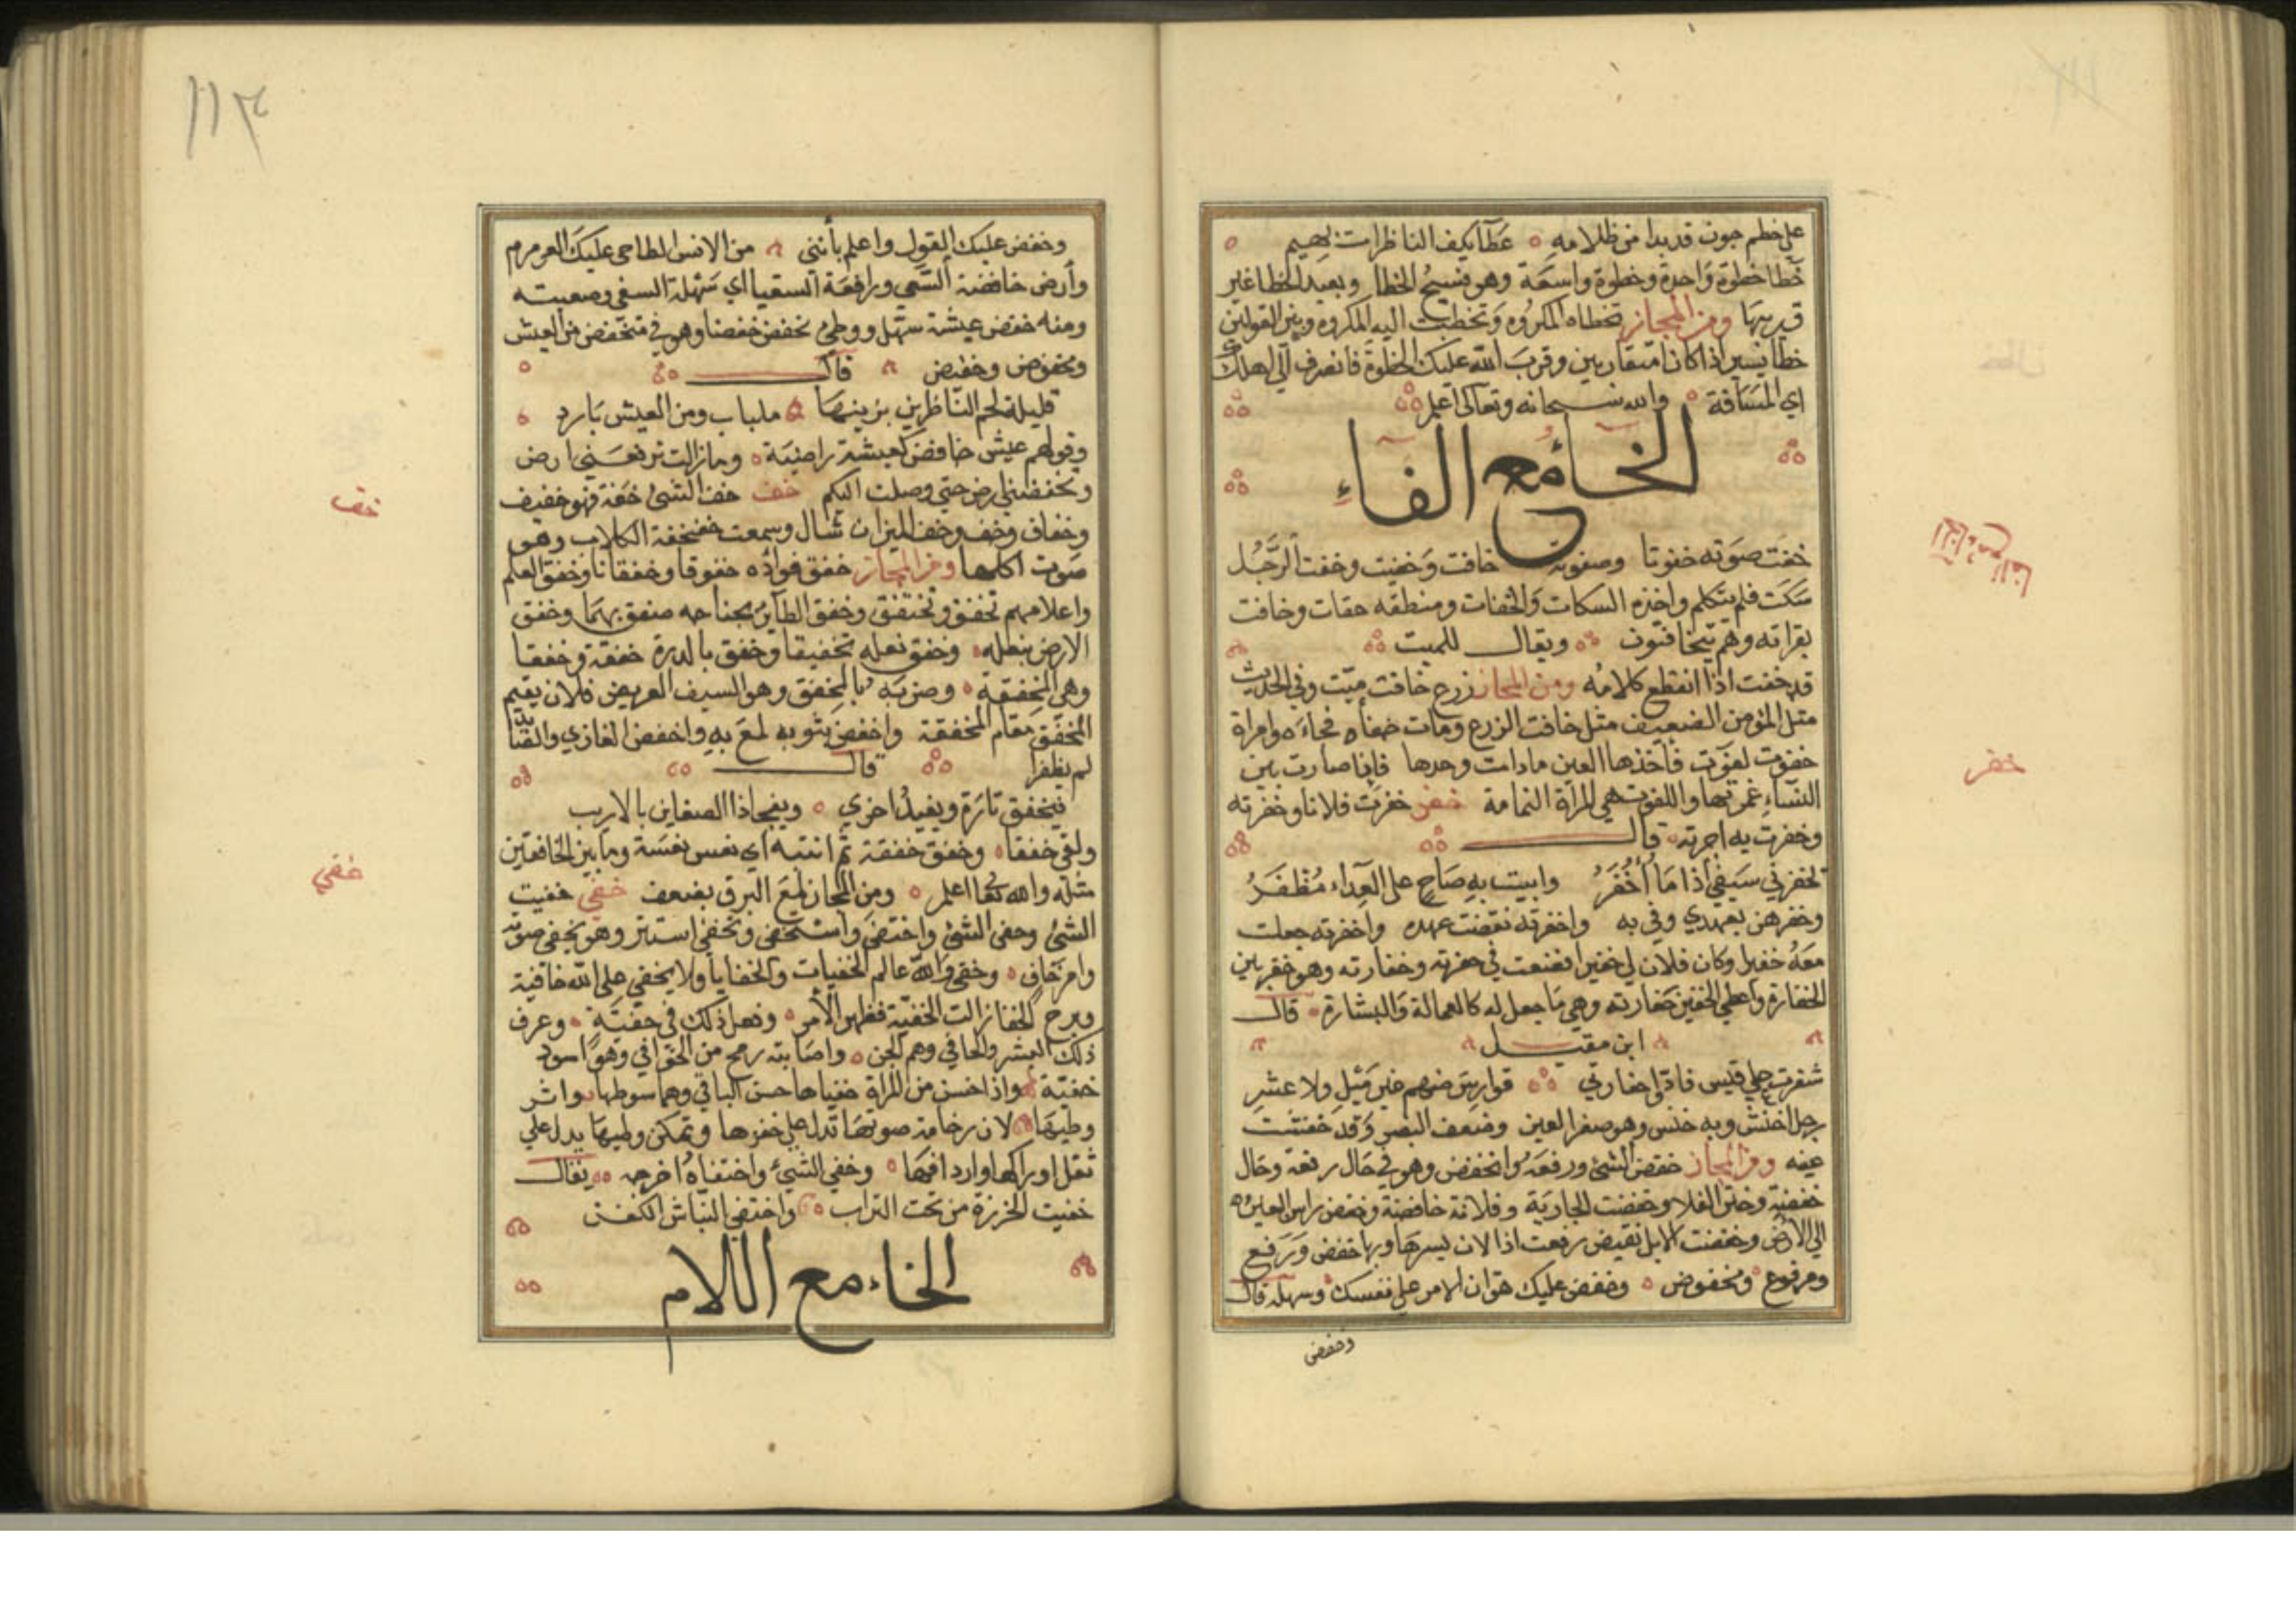 على خطم جون قد بدا من ظلامه ه غطا يكف الناظرات بهيم ه
خطا خطوة واحدة وخطوة واسعة وهو فسيح الخطا وبعيد الخطا غير
قريبها ومن المجاز تخطاه المكروه وتخطيت اليه المكروه وبين القولين
خطا يسير اذا كانا متقاربين وقرب الله عليك الخطوة فانصرف الي اهلك
اي المسافة ه والله سبحانه وتعالى اعلم
الخاء مع الفاء
خفت صوته خفوتا وصوته خافت وخفيت وخفت الرجل
سكت فلم يتكلم واخذه السكات والخفات ومنطقه خفات وخافت
بقراته وهم يتخافتون ويقال للميت
قد خفت اذا انقطع كلامه ومن المجاز زرع خافت ميت وفي الحديث
مثل المؤمن الضعيف مثل خافت الزرع ومات خفاه فجاءه وامراة
خفوت لفوت فاخذها العين مادامت وحدها فاذا صارت بين
النساء غمرتها واللفوت هي المراة النمامة خفر خفرت فلانا وخفرته
وخفرت به اجرته ه قال
تخفرني سيفي اذا ما أخفر وابيت به صاح على العداء مظفر
وخفرهن بعهدي وفي به واخفرته نقضت عهده واخفرته جعلت
معه خفيرا وكان فلان لي خفيرا فمنعت في خفرته وخفارته وهو خفر بين
الخفارة واعطي الخفير خفارته وهي ما جعل له كالعمالة والبشارة ه قال
ابن مقبل
قيس فادوا خفارتي قوارس خير ميل ولا عشر
رجل اخفش وبه خفش وهو صغر العين وضعف البصر وقد خفشت
عينه ومن المجاز خفض الشئ ورفعه وانخفض وهو في حال رفعة وحال
خفضة وختن الغلا وخفضت الجارية وفلانة خافضة وخفض راس البعير ه
الي الارض وخفضت الابل نقيض رفعت اذا لان يسرها وبها خفض ورفع
ومرفوع ومخفوض ه وخفض عليك هون الامر على نفسك وسهله قال
وخفض
الخاء مع الفا
خفر
١١٣
وخفض عليك القول واعلم بأنني من الانس الطاحي عليك العرمرم
وأرض خافضة السقي ورافعة السقيا اي سهلة السقي وصعبته
ومنه خفض عيشة سهل ووطي تخفض خفضا وهو في متخفض من العيش
ومخفوض وخفيض قال
قليلة لحم الناظرين يزينها شباب ومن العيش بارد
وقولهم عيش خافض كعيشة راضية ه ومازالت ترفعني ارض
وتخفضني ارض حتي وصلت اليكم خف خف الشئ خفة فهو خفيف
وخفاف وخف وخف الميزان شال وسمعت خفخفة الكلاب وهو
صوت اكلها ومن المجاز خفق فواده خفوقا وخفقانا وخفق العلم
واعلامهم تخفق وتختفق وخفق الطاير بجناحه صفق بهما وخفق
الارض بنعله وخفق نعله تخفيقا وخفق بالدرة خفقة وخفقا
وهي المخفقة ه وضربه بالمخفق وهو السيف العريض فلان يقيم
المخفق مقام المخفقة واخفق بثوبه لمع به واخفض الغازي والقنا
لم يظفرا قال
فيخفق تارة ويفيد اخري ه ويفجا ذا الضغاين بالارب
ولقي خفقا ه وخفق خفقة ثم انتبه اي نعس نعسة وما بين الخافقين
مثله والله تعا اعلم ه ومن المجاز لمع البرق بضعف خفي خفيت
الشئ وخفي الشئ واختفي واستخفي وتخفي استتر وهو يخفي صوته
وامر خاف ه وخفي والله عالم الخفيات والخفايا ولا يخفي على الله خافية
وبرح الخفا زالت الخفية فظهر الأمر ه وفعل ذلك في خفية ه وعرف
ذلك البشر والخافي وهم الجن ه واصابته رمح من الخوافي وهو اسود
خفية واذا حسن من المراة خفياها حسن الباقي وهما صوطها واثر
وطيها لان رخامة صوتها تدل على خفرها وتمكن وطيها يدل علي
ثقل اوراكها واردافها ه وخفي الشئ واختفاه اخرجه يقال
خفيت الخرزة من تحت التراب واختفي النباش الكفن
الخاء مع اللام
خف
خفي